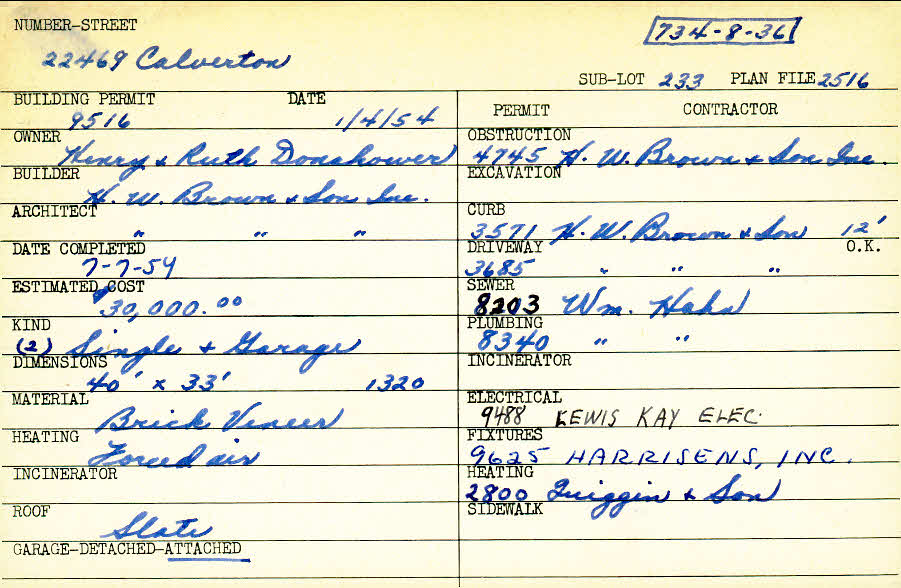 NUMBER-STREET
734-8-36
22469 Calverton
SUB-LOT 233 PLAN FILE 2516
BUILDING PERMIT DATE
9516 1/4/54
OWNER
Henry & Ruth Donahower
BUILDER
H. W. Brown & Son Inc.
ARCHITECT
" " "
DATE COMPLETED
7-7-54
ESTIMATED COST
$30,000.00
KIND
(2) Single & Garage
DIMENSIONS
40' x 33' 1320
MATERIAL
Brick Veneer
HEATING
Forced air
INCINERATOR
ROOF
Slate
GARAGE-DETACHED-ATTACHED
PERMIT CONTRACTOR
OBSTRUCTION
4745 H. W. Brown & Son Inc.
EXCAVATION
CURB
3571 H. W. Brown & Son 12'
DRIVEWAY O.K.
3685 " " "
SEWER
8203 Wm. Hahn
PLUMBING
8340 " "
INCINERATOR
ELECTRICAL
9488 LEWIS KAY ELEC.
FIXTURES
9625 HARRISENS, INC.
HEATING
2800 Quiggin & Son
SIDEWALK